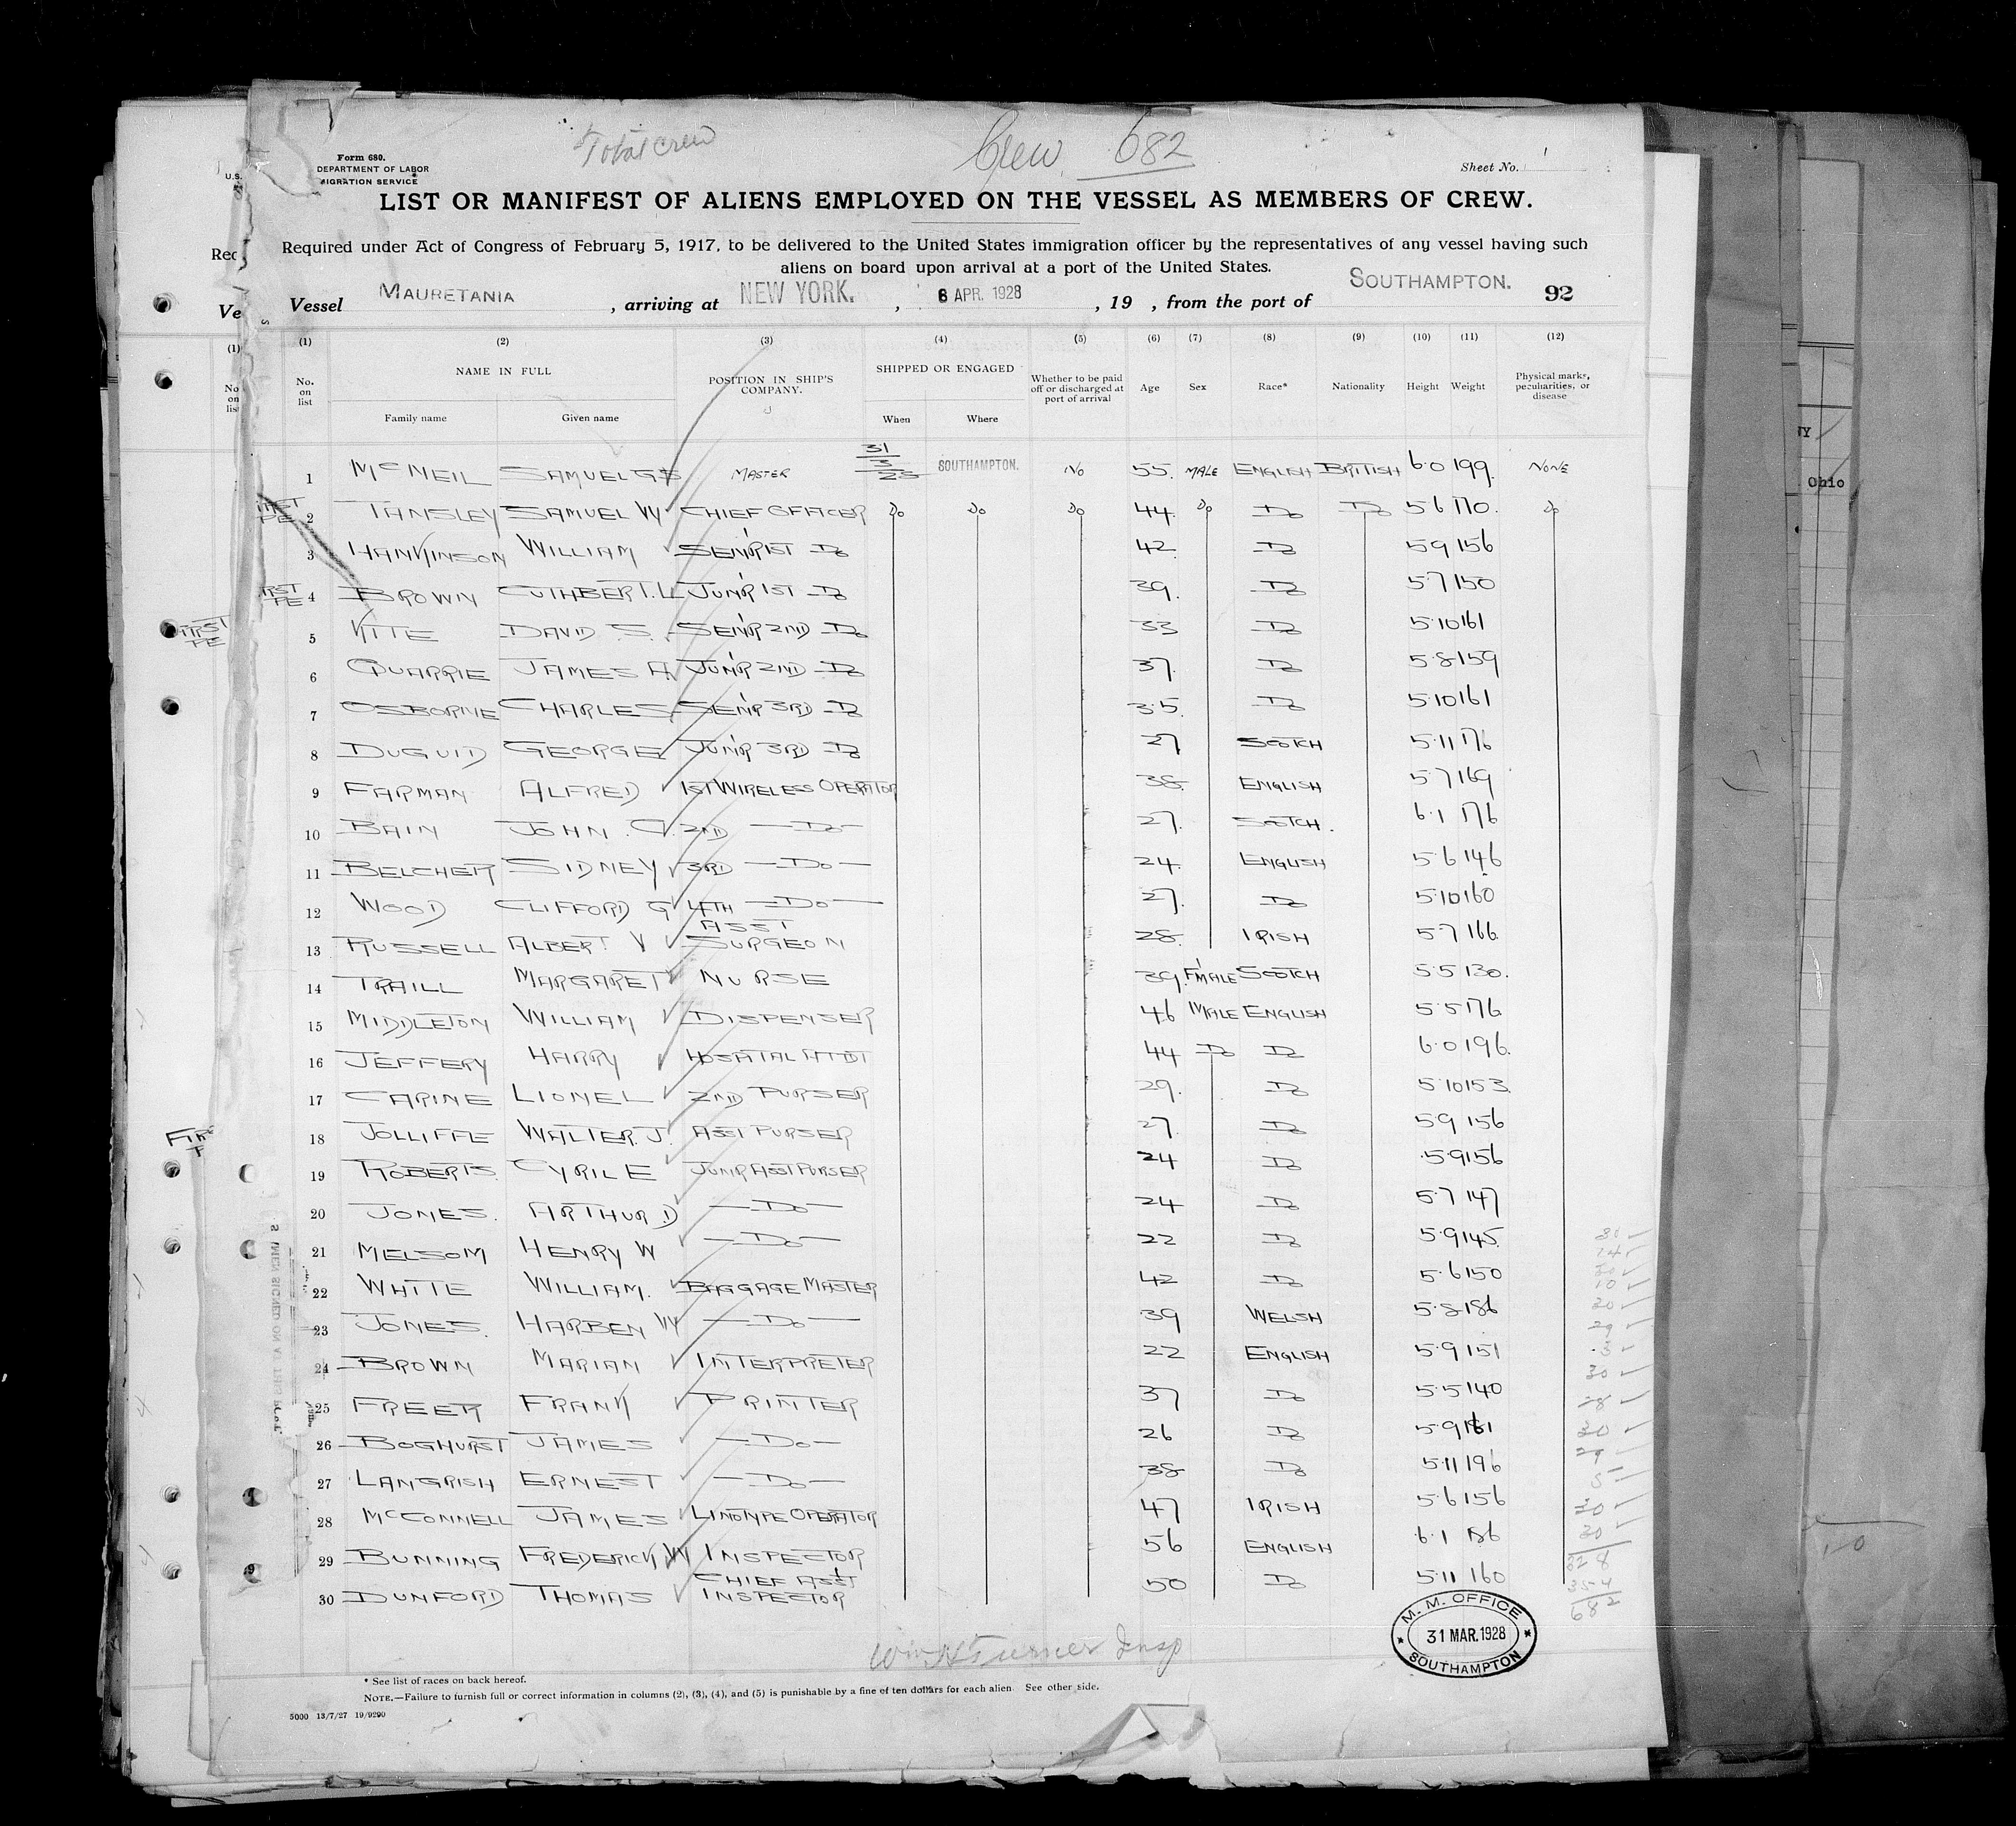 Total crew
Crew 682
Form 680.
U.S. DEPARTMENT OF LABOR
MIGRATION SERVICE
Sheet No. 1
LIST OR MANIFEST OF ALIENS EMPLOYED ON THE VESSEL AS MEMBERS OF CREW.
Required under Act of Congress of February 5, 1917, to be delivered to the United States immigration officer by the representatives of any vessel having such
aliens on board upon arrival at a port of the United States.
Vessel MAURETANIA, arriving at NEW YORK., 6 APR. 1928, 19 , from the port of SOUTHAMPTON. 92
(1) (2) (3) (4) (5) (6) (7) (8) (9) (10) (11) (12)
No. on list NAME IN FULL POSITION IN SHIP'S COMPANY. SHIPPED OR ENGAGED Whether to be paid off or discharged at port of arrival Age Sex Race* Nationality Height Weight Physical marks, peculiarities, or disease
Family name Given name When Where
1 McNEIL SAMUEL G S MASTER 31/3/28 SOUTHAMPTON. NO 55. MALE ENGLISH BRITISH 6.0 199. NONE
2 TANSLEY SAMUEL W CHIEF OFFICER DO DO DO 44. DO DO DO 5 6 170. DO
3 HANKINSON WILLIAM SEN'R 1ST DO 42 DO 5 9 156
4 BROWN CUTHBERT. L JUN'R 1ST DO 39. DO 5.7 150
5 KITE DAVID S. SEN'R 2ND DO 33 DO 5.10 161
6 QUARRIE JAMES A JUN'R 2ND DO 37. DO 5.8 159
7 OSBORNE CHARLES SEN'R 3RD DO 35. DO 5.10 161
8 DUGUID GEORGE JUN'R 3RD DO 27 SCOTCH 5.11 176
9 FARMAN ALFRED 1ST WIRELESS OPERATOR 38. ENGLISH 5.7 169
10 BAIN JOHN. C. 2ND DO 27. SCOTCH. 6.1 176
11 BELCHER SIDNEY 3RD DO 24. ENGLISH 5.6 146
12 WOOD CLIFFORD G 4TH DO 27. DO 5.10 160
13 RUSSELL ALBERT V ASST SURGEON 28. IRISH 5.7 166.
14 TRAILL MARGARET NURSE 39. F'MALE SCOTCH 5.5 130.
15 MIDDLETON WILLIAM DISPENSER 46 MALE ENGLISH 5.5 176
16 JEFFERY HARRY HOSPITAL ATTDT 44 DO DO 6.0 196.
17 CARINE LIONEL 2ND PURSER 29. DO 5.10 153
18 JOLLIFFE WALTER. J. ASST PURSER 27. DO 5 9 156
19 ROBERTS. CYRIL E JUNR ASST PURSER 24 DO 5 9 156
20 JONES. ARTHUR D DO 24 DO 5.7 147
21 MELSOM HENRY W DO 22 DO 5.9 145.
22 WHITE WILLIAM. BAGGAGE MASTER 42 DO 5.6 150
23 JONES. HARBEN W DO 39 WELSH 5.8 186
24 BROWN MARIAN INTERPRETER 22 ENGLISH 5.9 151
25 FREER FRANK PRINTER 37 DO 5.5 140
26 BOGHURST JAMES DO 26 DO 5.9 161
27 LANGRISH ERNEST DO 38 DO 5.11 196
28 McCONNELL JAMES LINOTYPE OPERATOR 47 IRISH 5.6 156
29 BUNNING FREDERICK W INSPECTOR 56 ENGLISH 6.1 186
30 DUNFORD THOMAS CHIEF ASST INSPECTOR 50 DO 5.11 160
328
354
682
M. M. OFFICE
31 MAR. 1928
SOUTHAMPTON
Wm H Turner Insp
* See list of races on back hereof.
NOTE.—Failure to furnish full or correct information in columns (2), (3), (4), and (5) is punishable by a fine of ten dollars for each alien. See other side.
5000 13/7/27 19/9290
Ohio